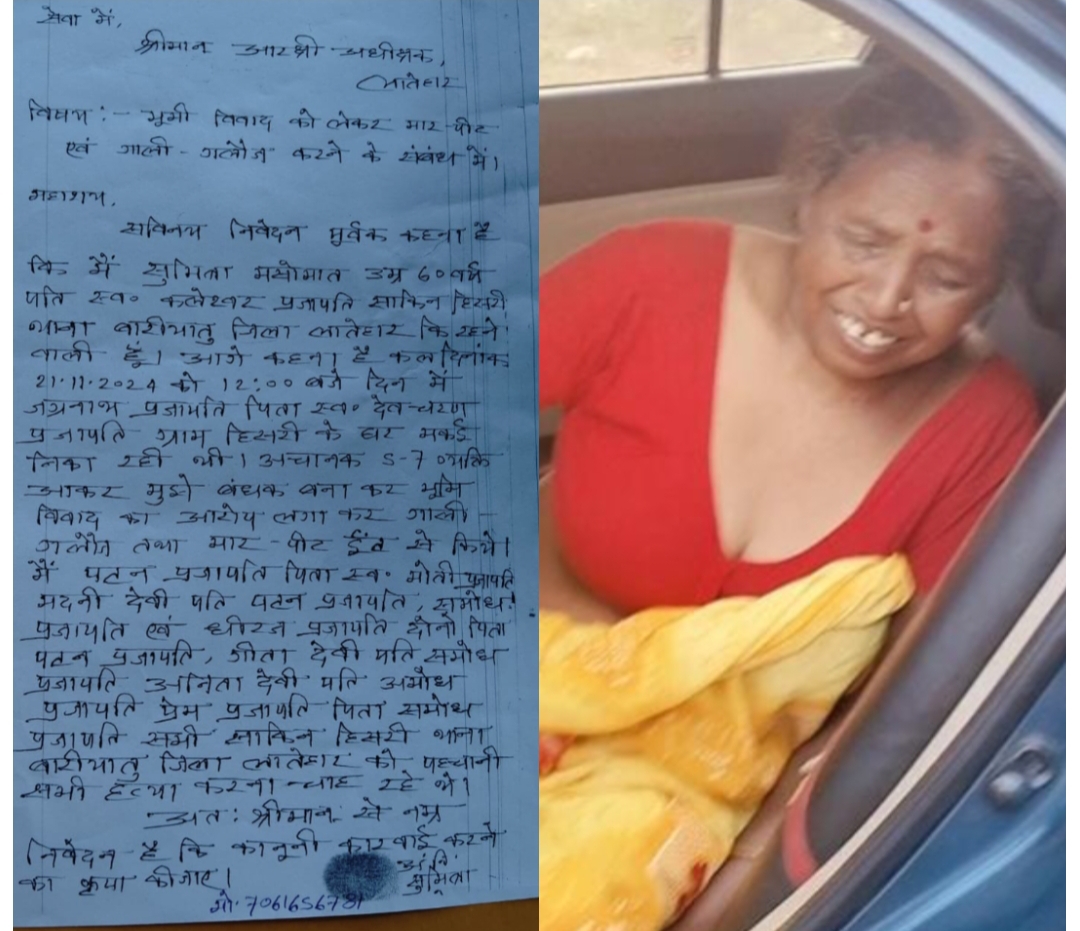 सेवा में,
श्रीमान आरक्षी अधीक्षक,
लातेहार
विषय :- भूमी विवाद को लेकर मार-पीट
एवं गाली-गलौज करने के संबंध में।
महाशय,
सविनय निवेदन पूर्वक कहना है
कि मैं सुमिता मसोमात उम्र 60 वर्ष
पति स्व० कलेश्वर प्रजापति साकिन हिसरी
थाना बारीयातु जिला लातेहार कि रहने
वाली हूँ। आगे कहना है कल दिनांक
21.11.2024 को 12:00 बजे दिन में
जग्रनाथ प्रजापति पिता स्व० देव-चरण
प्रजापति ग्राम हिसरी के घर मकई
निका रही थी। अचानक 5-7 व्यक्ति
आकर मुझे बंधक बना कर भूमि
विवाद का आरोप लगा कर गाली-
गलौज तथा मार-पीट ईंट से किये।
मैं पटन प्रजापति पिता स्व० मोती प्रजापति
मदनी देवी पति पटन प्रजापति, समोध
प्रजापति एवं धीरज प्रजापति दोनो पिता
पटन प्रजापति, गीता देवी पति समोध
प्रजापति अनिता देवी पति अमोध
प्रजापति प्रेम प्रजापति पिता समोध
प्रजापति सभी साकिन हिसरी थाना
बारीयातु जिला लातेहार को पहचानी
सभी हत्या करना चाह रहे थे।
अतः श्रीमान से नम्र
निवेदन है कि कानूनी कारवाई करने
का कृपा कीजाए।
मो. 7061656781